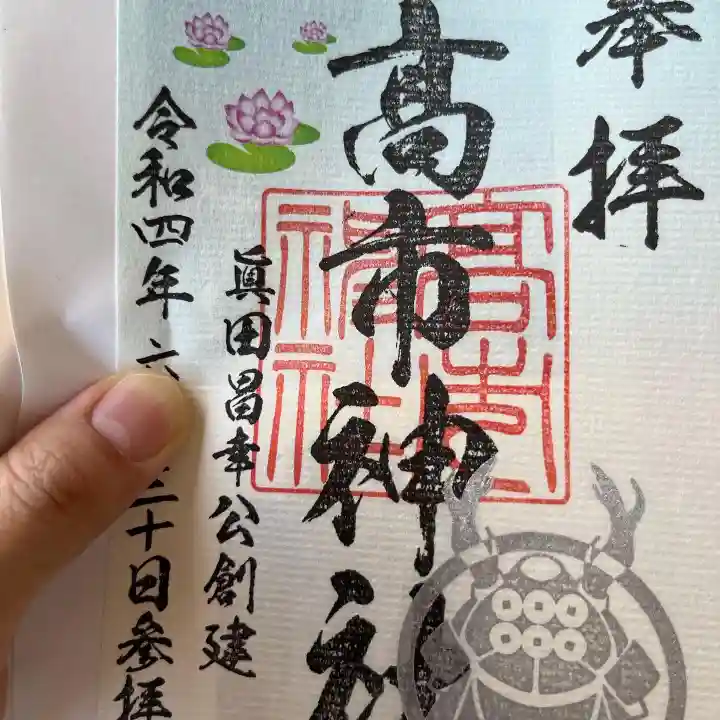 奉拝
髙市神社
眞田昌幸公創建
令和四年六三十日参拝